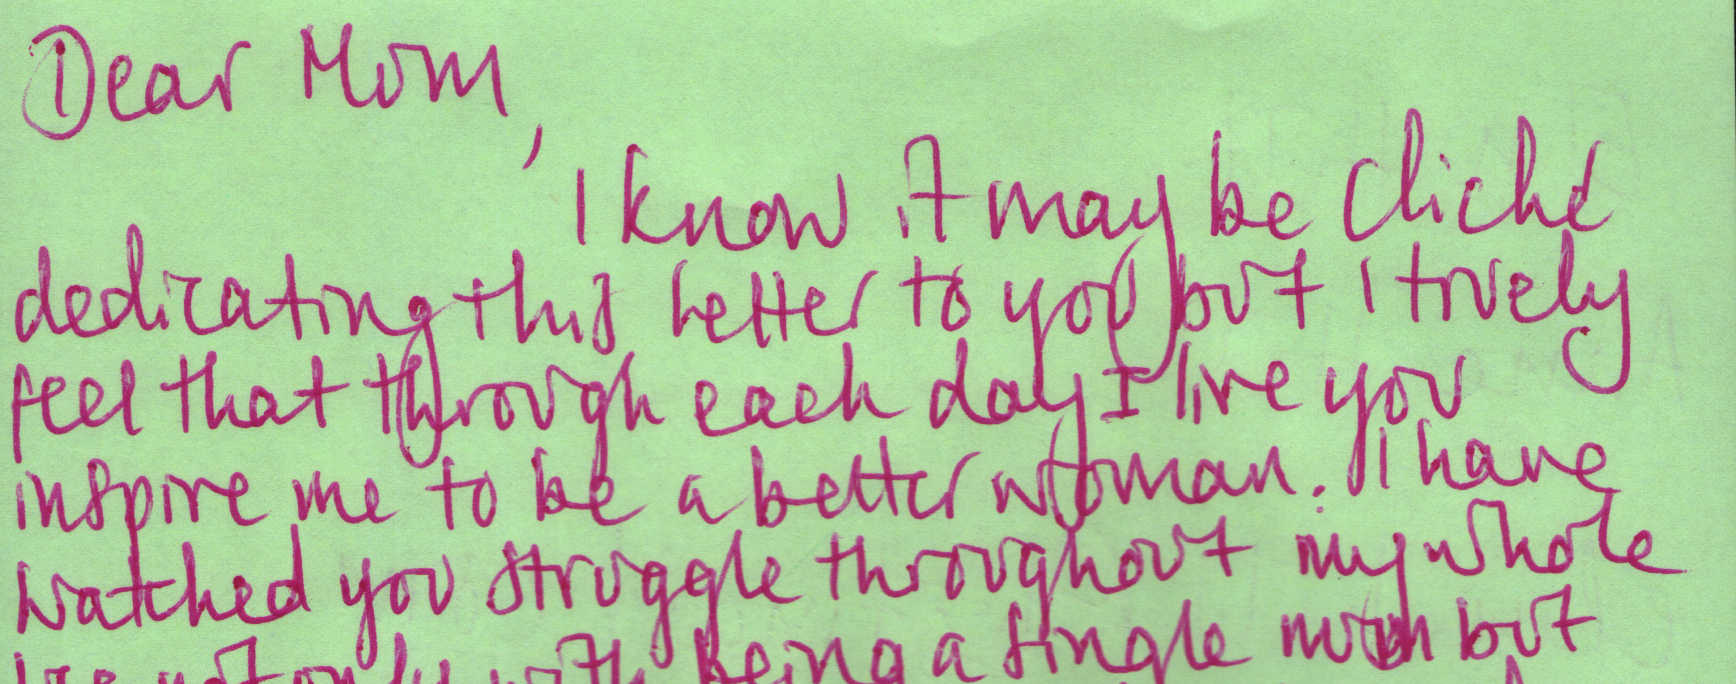 Dear Mom,
I know it may be cliché
dedicating this letter to you but I truely
feel that through each day I live you
inspire me to be a better woman. I have
watched you struggle throughout my whole
life not only with being a single mom but